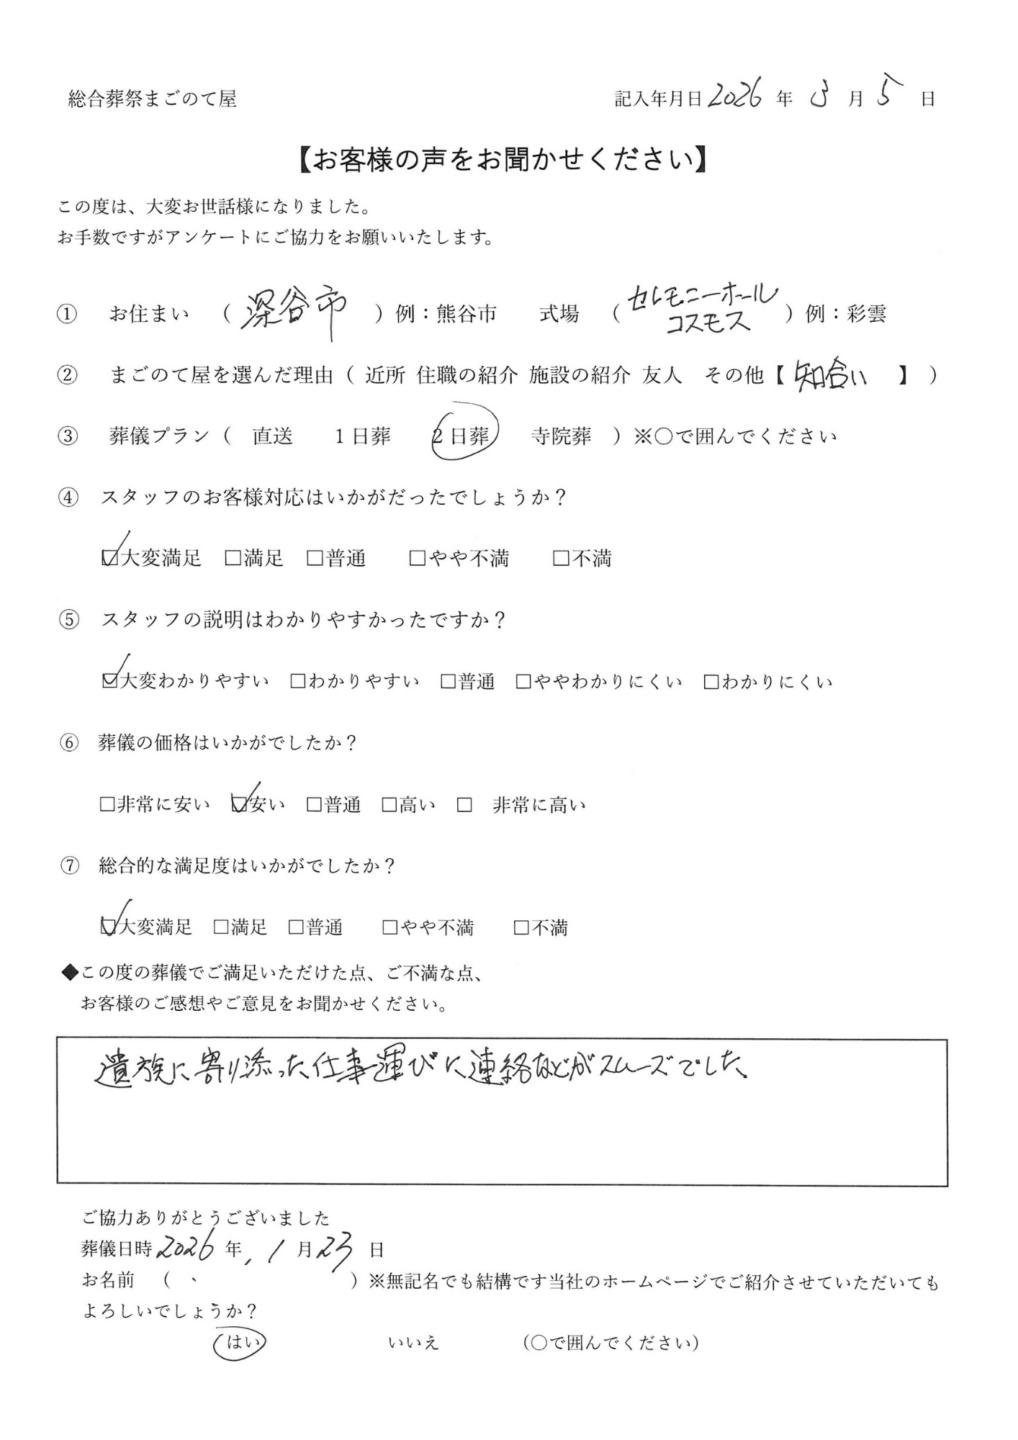 総合葬祭まごのて屋 記入年月日 2026 年 3 月 5 日
【お客様の声をお聞かせください】
この度は、大変お世話様になりました。
お手数ですがアンケートにご協力をお願いいたします。
① お住まい （ 深谷市 ）例：熊谷市 式場 （ セレモニーホール コスモス ）例：彩雲
② まごのて屋を選んだ理由（ 近所 住職の紹介 施設の紹介 友人 その他【 知合い 】 ）
③ 葬儀プラン（ 直送 1日葬 2日葬 寺院葬 ）※〇で囲んでください
④ スタッフのお客様対応はいかがだったでしょうか？
☑大変満足 □満足 □普通 □やや不満 □不満
⑤ スタッフの説明はわかりやすかったですか？
☑大変わかりやすい □わかりやすい □普通 □ややわかりにくい □わかりにくい
⑥ 葬儀の価格はいかがでしたか？
□非常に安い ☑安い □普通 □高い □ 非常に高い
⑦ 総合的な満足度はいかがでしたか？
☑大変満足 □満足 □普通 □やや不満 □不満
◆この度の葬儀でご満足いただけた点、ご不満な点、
お客様のご感想やご意見をお聞かせください。
遺族に寄り添った仕事運びに連絡などがスムーズでした
ご協力ありがとうございました
葬儀日時 2026 年 1 月 23 日
お名前 （ ）※無記名でも結構です当社のホームページでご紹介させていただいても
よろしいでしょうか？
はい いいえ （〇で囲んでください）